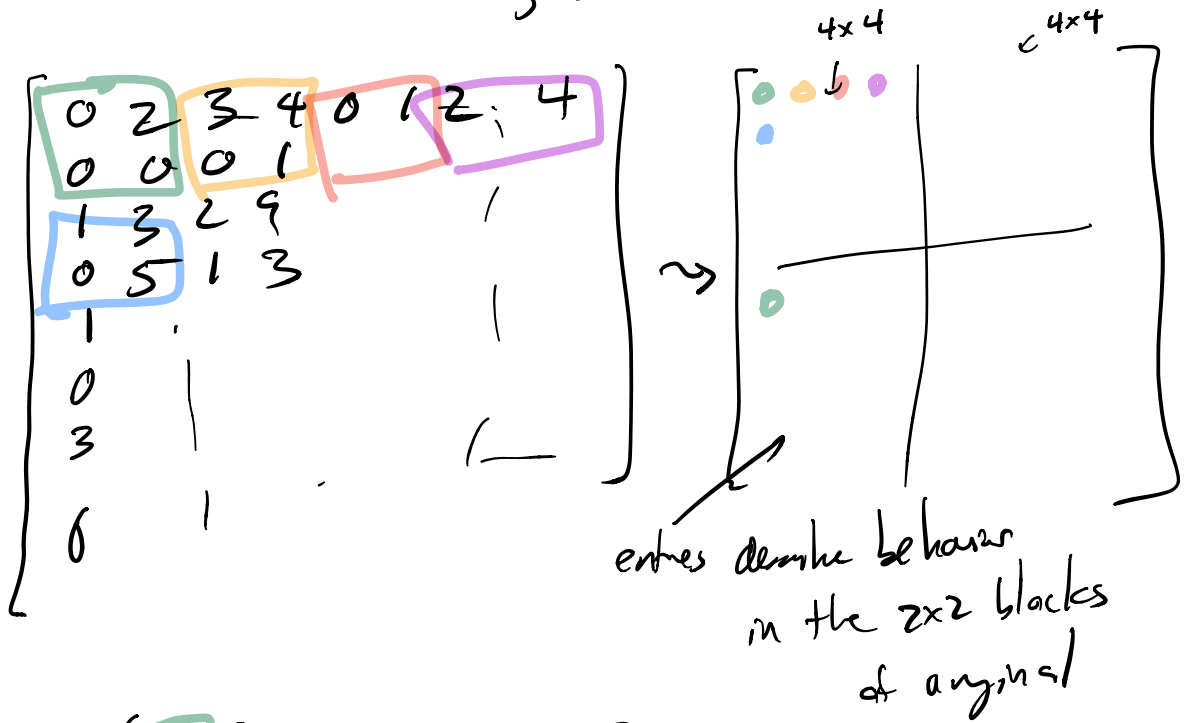 4x4
4x4
0 2 3 4 0 1 2 . 4
0 0 0 1
1 3 2 9
0 5 1 3
1
0
3
entries describe behavior
in the 2x2 blocks
of original